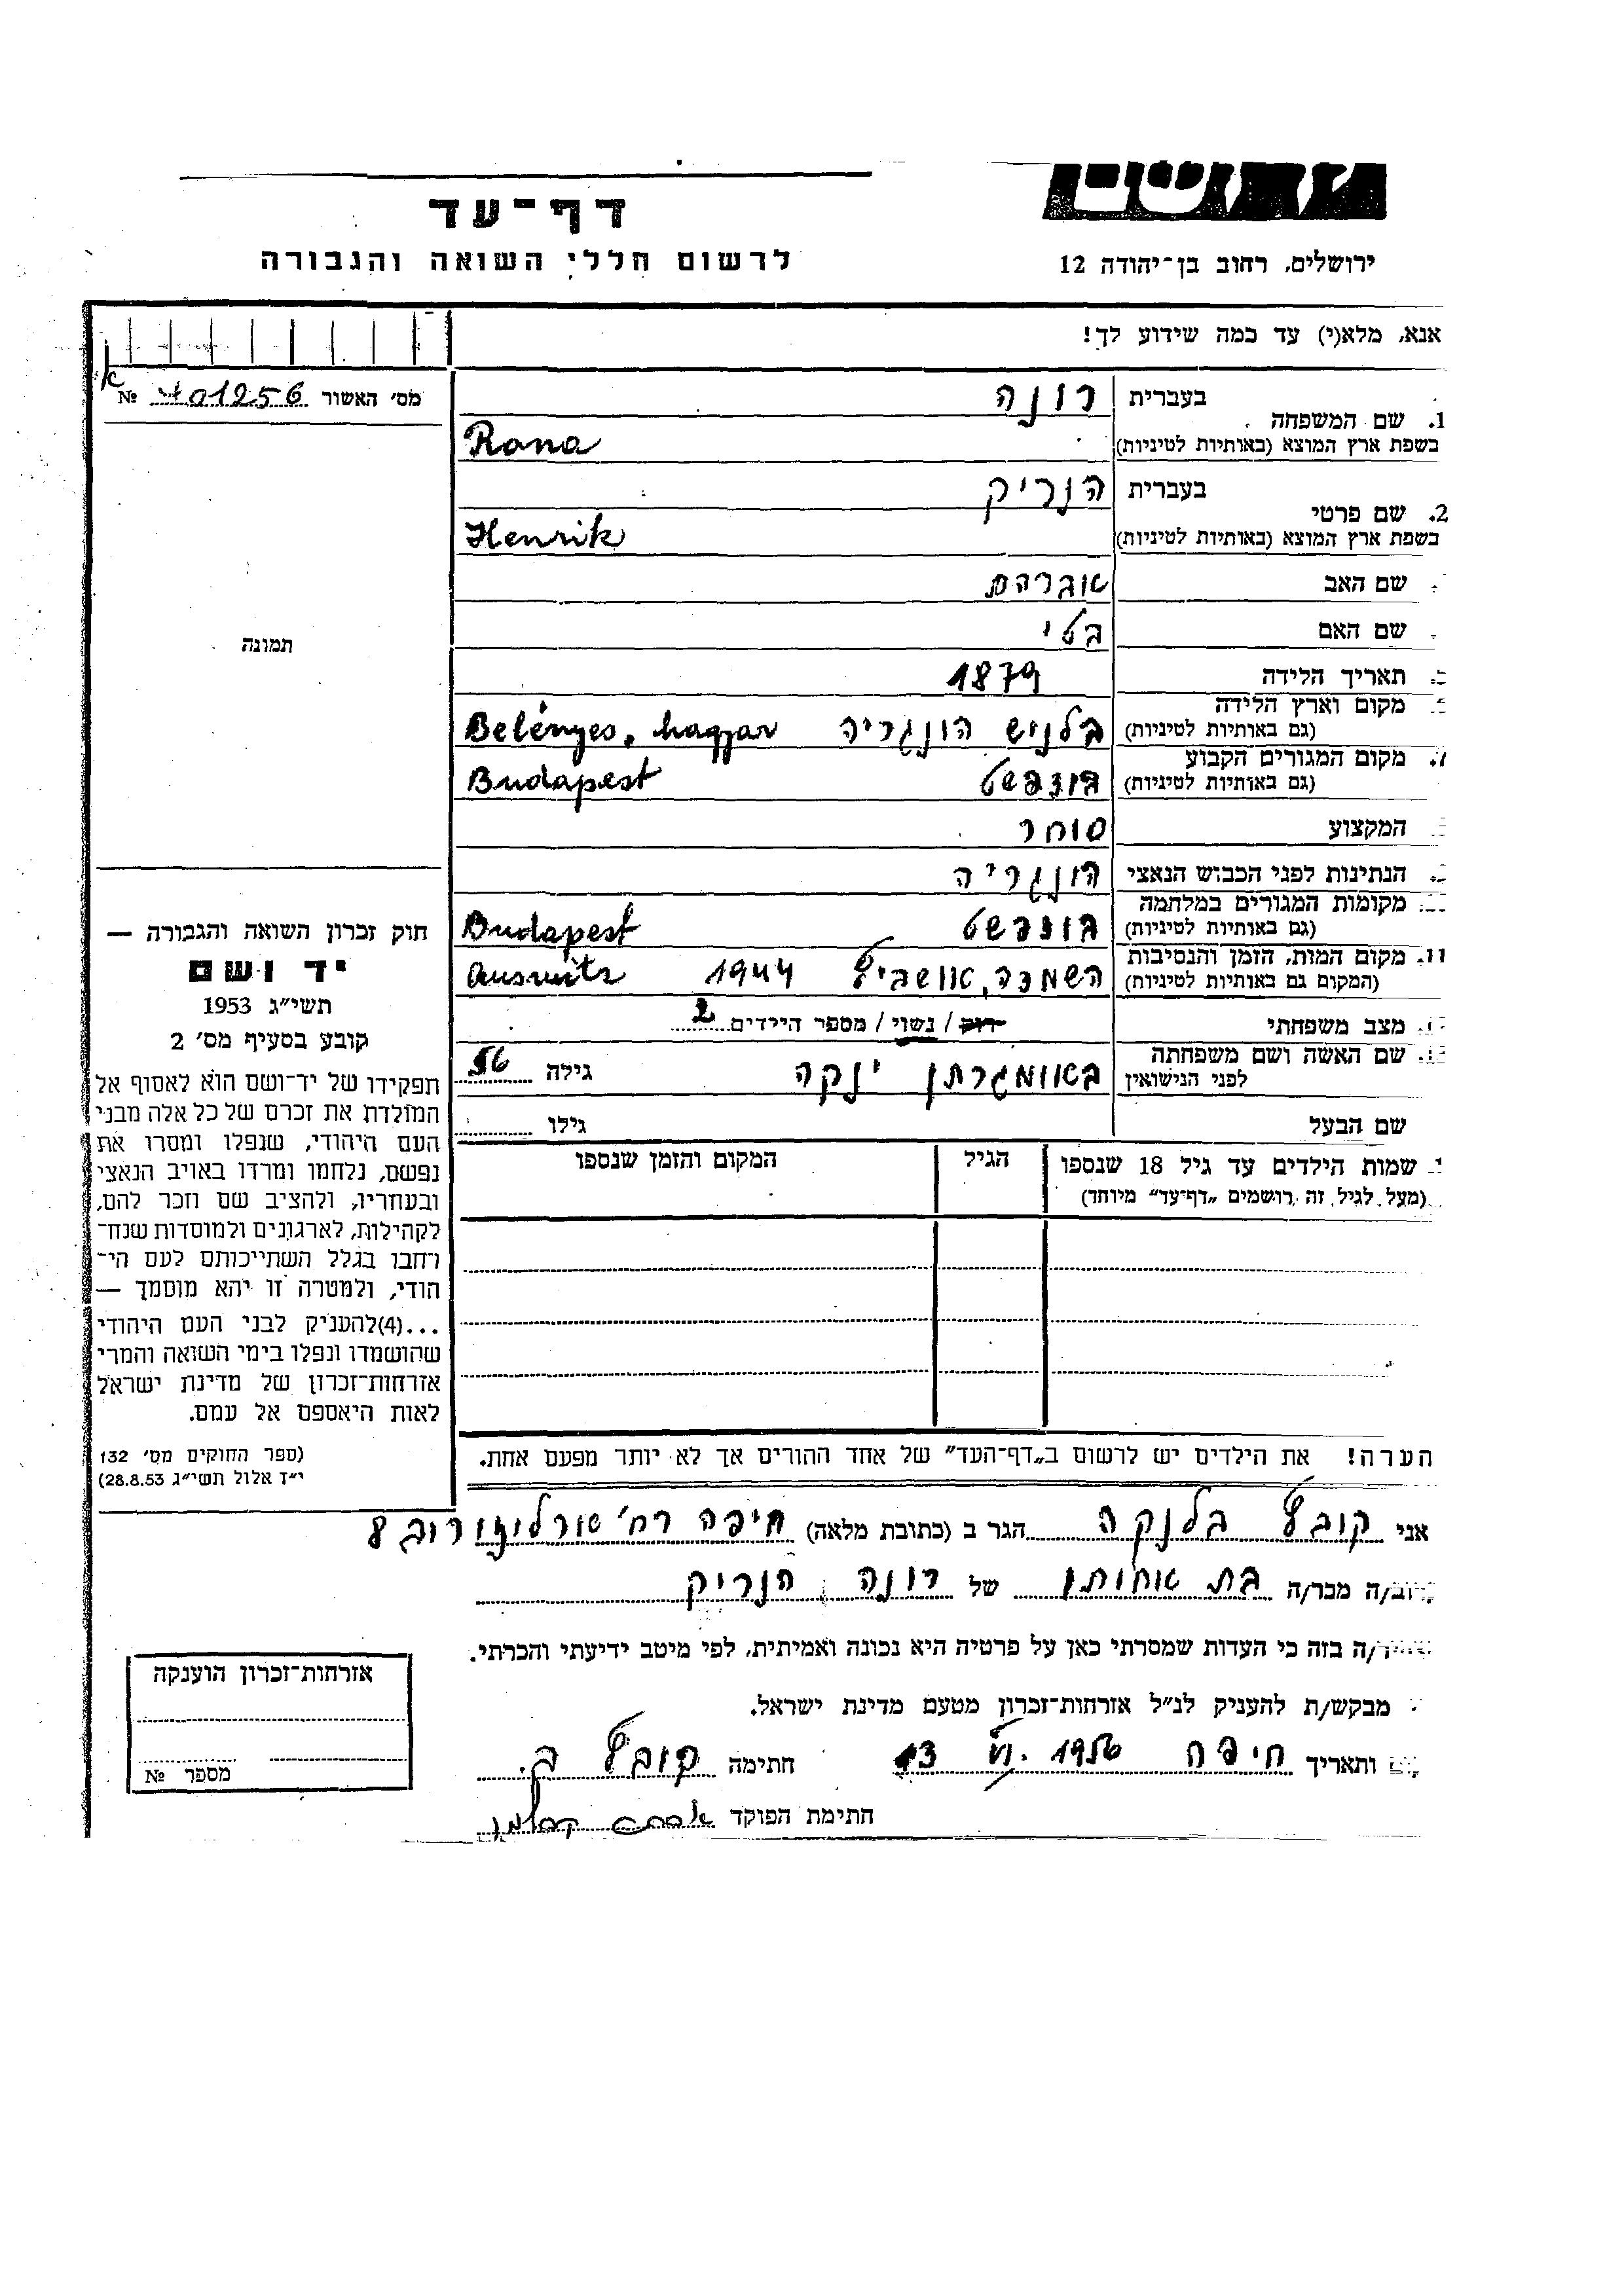 דף־עד
לרשום חללי השואה והגבורה
ירושלים, רחוב בן־יהודה 12
אנא, מלא(י) עד כמה שידוע לך!
מס׳ האשור № 401256
1. שם המשפחה בעברית רונה
בשפת ארץ המוצא (באותיות לטיניות) Rona
2. שם פרטי בעברית הנריק
בשפת ארץ המוצא (באותיות לטיניות) Henrik
שם האב אברהם
שם האם בטי
תאריך הלידה 1879
מקום וארץ הלידה
(גם באותיות לטיניות) בלניש הונגריה Belényes, hagyar
מקום המגורים הקבוע
(גם באותיות לטיניות) בודפשט Budapest
המקצוע סוחר
הנתינות לפני הכבוש הנאצי הונגריה
מקומות המגורים במלחמה
(גם באותיות לטיניות) בודפשט Budapest
11. מקום המות, הזמן והנסיבות
(המקום גם באותיות לטיניות) השמדה, אושביץ 1944 Auswitz
מצב משפחתי רוק / נשוי / מספר היידים 2
שם האשה ושם משפחתה
לפני הנישואין באומגרתן ינקה גילה 56
שם הבעל גילו
שמות הילדים עד גיל 18 שנספו הגיל המקום והזמן שנספו
(מעל לגיל זה רושמים „דף־עד” מיוחד)
הערה! את הילדים יש לרשום ב„דף־העד” של אחד ההורים אך לא יותר מפעם אחת.
תמונה
חוק זכרון השואה והגבורה —
יד ושם
תשי״ג 1953
קובע בסעיף מס׳ 2
תפקידו של יד־ושם הוא לאסוף אל
המולדת את זכרם של כל אלה מבני
העם היהודי, שנפלו ומסרו את
נפשם, נלחמו ומרדו באויב הנאצי
ובעחריו, ולהציב שם וזכר להם,
לקהילות, לארגונים ולמוסדות שנח־
רחבו בגלל השתייכותם לעם הי־
הודי, ולמטרה זו יהא מוסמך —
...(4)להעניק לבני העם היהודי
שהושמדו ונפלו בימי השואה והמרי
אזרחות־זכרון של מדינת ישראל
לאות היאספם אל עמם.
(ספר החוקים מס׳ 132
י״ד אלול תשי״ג 28.8.53)
אני קובץ בלנקה הגר ב (כתובת מלאה) חיפה רח׳ ארלוזורוב 8
מכר/ה בת אחותו של רונה הנריק
בזה כי העדות שמסרתי כאן על פרטיה היא נכונה ואמיתית, לפי מיטב ידיעתי והכרתי.
מבקש/ת להעניק לנ״ל אזרחות־זכרון מטעם מדינת ישראל.
ותאריך חיפה 13 VI. 1956 חתימה קובץ ב.
חתימת הפוקד
אזרחות־זכרון הוענקה
מספר №